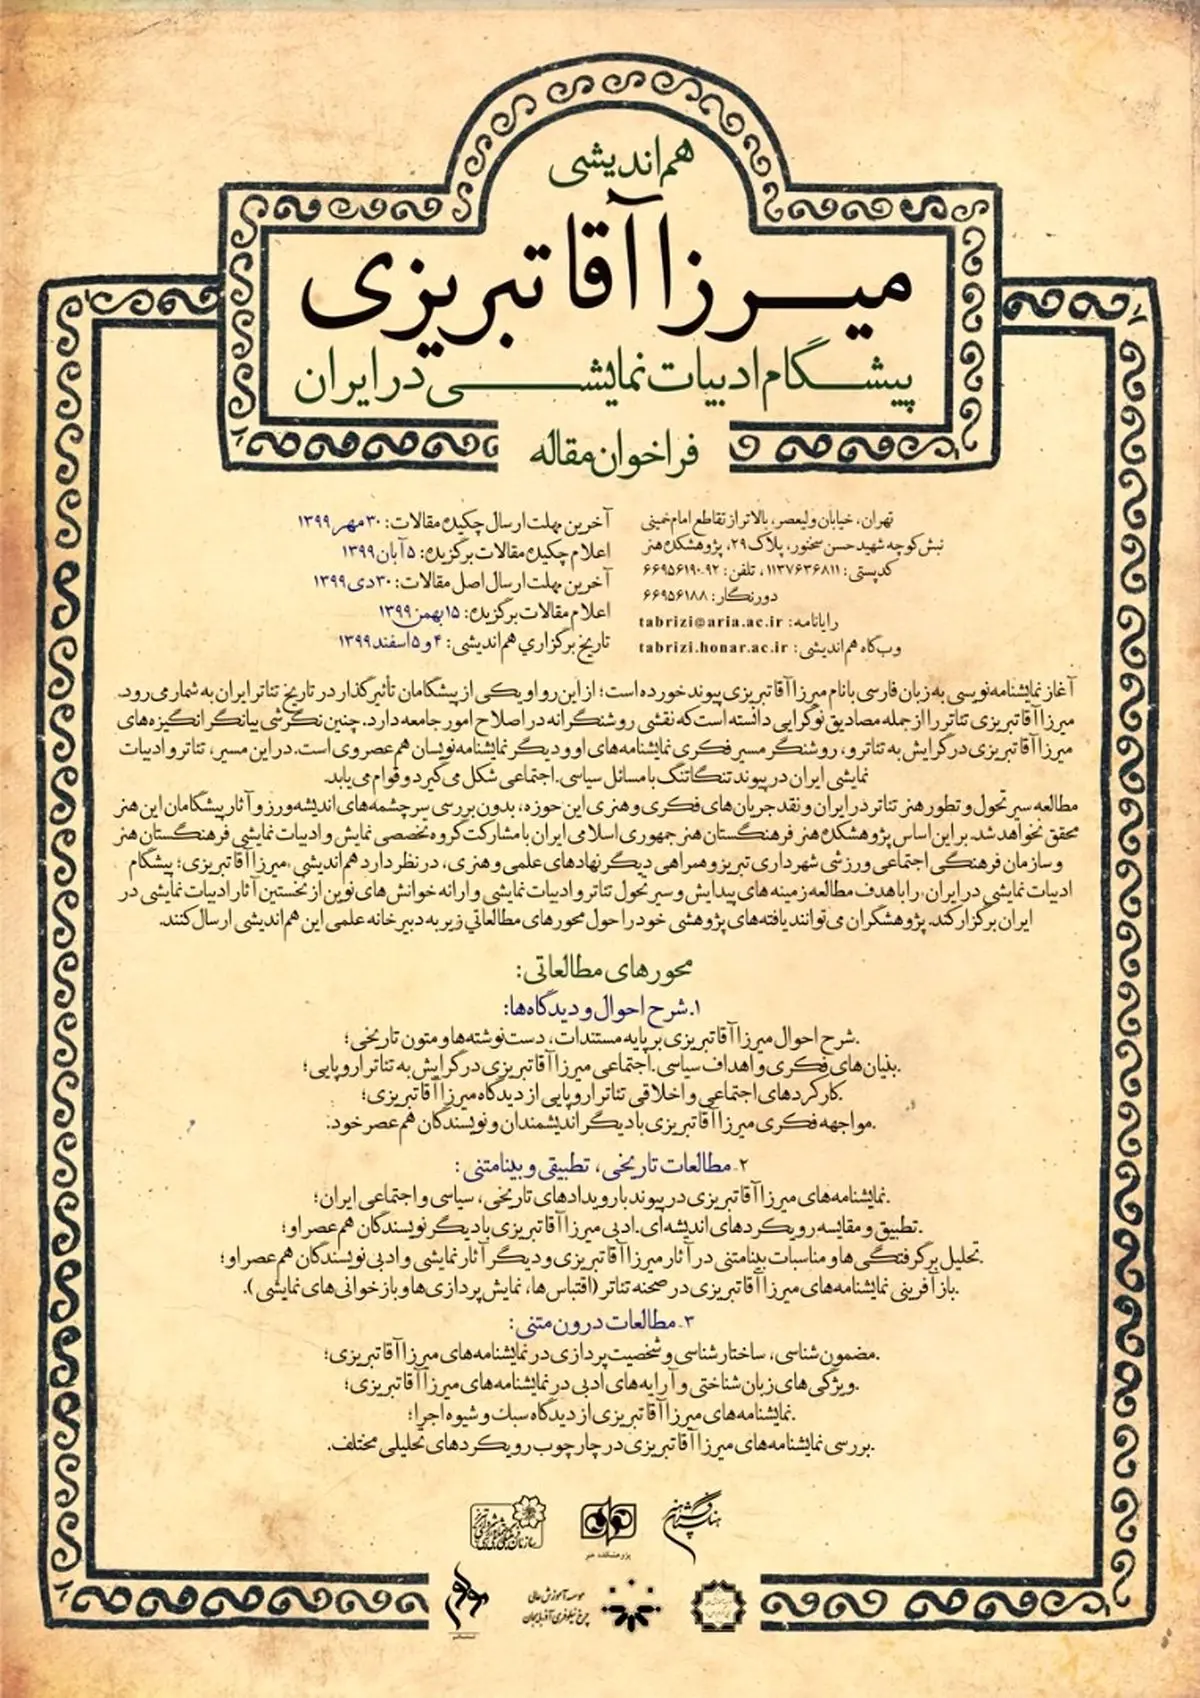 هم‌اندیشی
میرزا آقا تبریزی
پیشگام ادبیات نمایشی در ایران
فراخوان مقاله
تهران، خیابان ولیعصر، بالاتر از تقاطع امام خمینی
نبش کوچه شهید حسن سخنور، پلاک ۲۹، پژوهشکده هنر
کدپستی: ۱۱۳۷۶۳۶۸۱۱، تلفن: ۹۲-۶۶۹۵۶۱۹۰
دورنگار: ۶۶۹۵۶۱۸۸
رایانامه: tabrizi@aria.ac.ir
وب‌گاه هم‌اندیشی: tabrizi.honar.ac.ir
آخرین مهلت ارسال چکیده مقالات: ۳۰ مهر ۱۳۹۹
اعلام چکیده مقالات برگزیده: ۵ آبان ۱۳۹۹
آخرین مهلت ارسال اصل مقالات: ۳۰ دی ۱۳۹۹
اعلام مقالات برگزیده: ۱۵ بهمن ۱۳۹۹
تاریخ برگزاري هم‌اندیشی: ۴ و ۵ اسفند ۱۳۹۹
آغاز نمایشنامه‌نویسی به زبان فارسی با نام میرزا آقا تبریزی پیوند خورده است؛ از این رو او یکی از پیشگامان تأثیرگذار در تاریخ تئاتر ایران به شمار می‌رود.
میرزا آقا تبریزی تئاتر را از جمله مصادیق نوگرایی دانسته است که نقشی روشنگرانه در اصلاح امور جامعه دارد. چنین نگرشی بیانگر انگیزه‌های
میرزا آقا تبریزی در گرایش به تئاتر و، روشنگر مسیر فکری نمایشنامه‌های او و دیگر نمایشنامه‌نویسان هم‌عصر وی است. در این مسیر، تئاتر و ادبیات
نمایشی ایران در پیوند تنگاتنگ با مسائل سیاسی.اجتماعی شکل می‌گیرد و قوام می‌یابد.
مطالعه سیر تحول و تطور هنر تئاتر در ایران و نقد جریان‌های فکری و هنری این حوزه، بدون بررسی سرچشمه‌های اندیشه‌ورز و آثار پیشگامان این هنر
محقق نخواهد شد. بر این اساس پژوهشکده هنر فرهنگستان هنر جمهوری اسلامی ایران با مشارکت گروه تخصصی نمایش و ادبیات نمایشی فرهنگستان هنر
و سازمان فرهنگی اجتماعی ورزشی شهرداری تبریز و همراهی دیگر نهادهای علمی و هنری، در نظر دارد هم‌اندیشی «میرزا آقا تبریزی؛ پیشگام
ادبیات نمایشی در ایران» را با هدف مطالعه زمینه‌های پیدایش و سیر تحول تئاتر و ادبیات نمایشی و ارائه خوانش‌های نوین از نخستین آثار ادبیات نمایشی در
ایران برگزار کند. پژوهشگران می‌توانند یافته‌های پژوهشی خود را حول محورهای مطالعاتي زیر به دبیرخانه علمی این هم‌اندیشی ارسال کنند.
محورهای مطالعاتی:
۱.شرح احوال و دیدگاه‌ها:
.شرح احوال میرزا آقا تبریزی بر پایه مستندات، دست‌نوشته‌ها و متون تاریخی؛
.بنیان‌های فکری و اهداف سیاسی.اجتماعی میرزا آقا تبریزی در گرایش به تئاتر اروپایی؛
.کارکردهای اجتماعی و اخلاقی تئاتر اروپایی از دیدگاه میرزا آقا تبریزی؛
.مواجهه فکری میرزا آقا تبریزی با دیگر اندیشمندان و نویسندگان هم‌عصر خود:
۲-مطالعات تاریخی، تطبیقی و بینامتنی:
.نمایشنامه‌های میرزا آقا تبریزی در پیوند با رویدادهای تاریخی، سیاسی و اجتماعی ایران؛
.تطبیق و مقایسه رویکردهای اندیشه‌ای.ادبی میرزا آقا تبریزی با دیگر نویسندگان هم‌عصر او؛
.تحلیل برگرفتگی‌ها و مناسبات بینامتنی در آثار میرزا آقا تبریزی و دیگر آثار نمایشی و ادبی نویسندگان هم‌عصر او؛
.بازآفرینی نمایشنامه‌های میرزا آقا تبریزی در صحنه تئاتر (اقتباس‌ها، نمایش‌پردازی‌ها و بازخوانی‌های نمایشی).
۳-مطالعات درون‌متنی:
.مضمون‌شناسی، ساختارشناسی و شخصیت‌پردازی در نمایشنامه‌های میرزا آقا تبریزی؛
.ویژگی‌های زبان‌شناختی و آرایه‌های ادبی در نمایشنامه‌های میرزا آقا تبریزی؛
.نمایشنامه‌های میرزا آقا تبریزی از دیدگاه سبک و شیوه اجرا؛
.بررسی نمایشنامه‌های میرزا آقا تبریزی در چارچوب رویکردهای تحلیلی مختلف.
فرهنگستان هنر
پژوهشکده هنر
موسسه آموزش عالی
چرخ نیلوفری آذربایجان